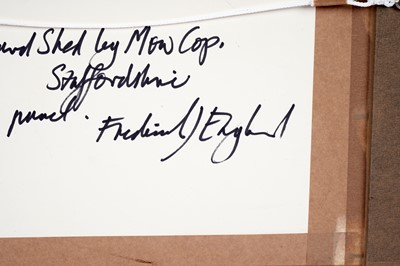 Shed by Mow Cop.
Staffordshire
panel.
Frederick J England